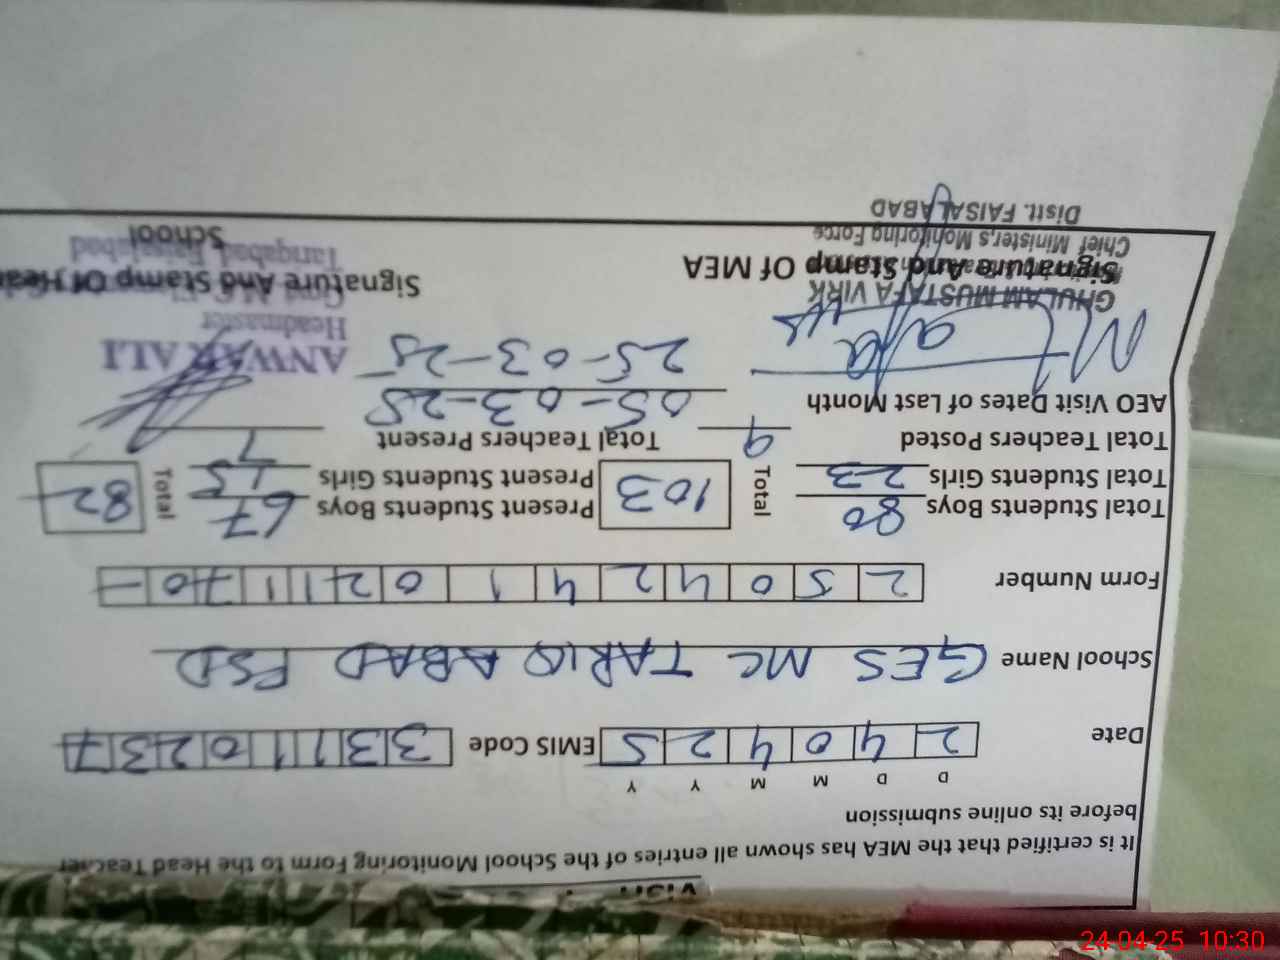 It is certified that the MEA has shown all entries of the School Monitoring Form to the Head Teacher
before its online submission
D D M M Y Y
Date 2 4 0 4 2 5 EMIS Code 3 3 1 1 0 2 3 7
School Name GES MC TARIQ ABAD FSD
Form Number 2 5 0 4 2 4 1 0 2 1 1 7 0 -
Total Students Boys 80 Total 103 Present Students Boys 67 Total 82
Total Students Girls 23 Present Students Girls 15
Total Teachers Posted 9 Total Teachers Present 7
AEO Visit Dates of Last Month 05-03-25
25-03-25
ANWAR ALI
Headmaster
GHULAM MUSTAFA VIRK
Signature And Stamp Of MEA Signature And Stamp Of Head
School
Tariqabad Faisalabad
Chief Minister,s Monitoring Force
Distt. FAISALABAD
24-04-25 10:30